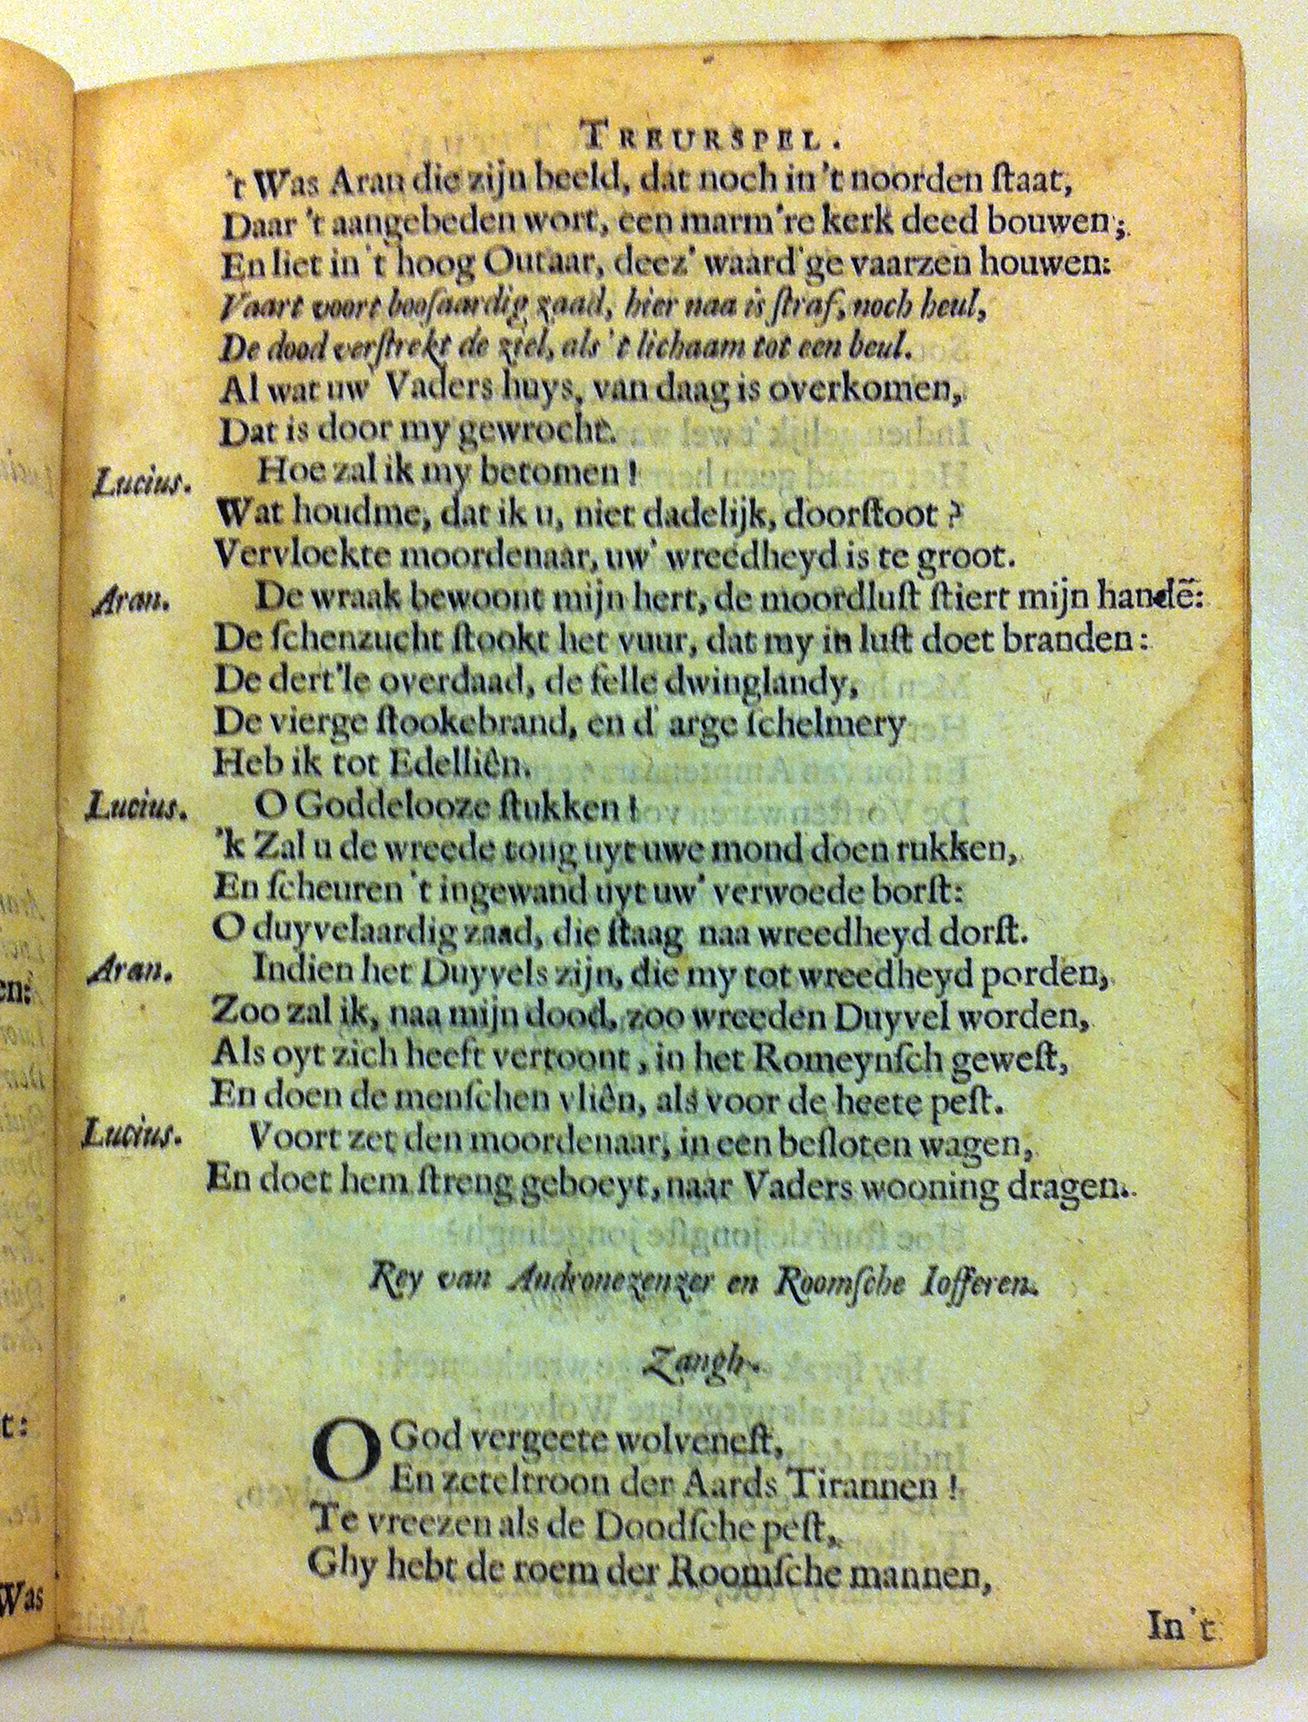 TREURSPEL.
't Was Aran die zijn beeld, dat noch in 't noorden ſtaat,
Daar 't aangebeden wort, een marm're kerk deed bouwen;
En liet in 't hoog Outaar, deez' waard'ge vaarzen houwen:
Vaart voort booſaardig zaad, hier naa is ſtraf, noch heul,
De dood verſtrekt de ziel, als 't lichaam tot een beul.
Al wat uw' Vaders huys, van daag is overkomen,
Dat is door my gewrocht.
Lucius. Hoe zal ik my betomen!
Wat houdme, dat ik u, niet dadelijk, doorſtoot?
Vervloekte moordenaar, uw' wreedheyd is te groot.
Aran. De wraak bewoont mijn hert, de moordluſt ſtiert mijn handē:
De ſchenzucht ſtookt het vuur, dat my in luſt doet branden:
De dert'le overdaad, de felle dwinglandy,
De vierge ſtookebrand, en d' arge ſchelmery
Heb ik tot Edelliên.
Lucius. O Goddelooze ſtukken!
'k Zal u de wreede tong uyt uwe mond doen rukken,
En ſcheuren 't ingewand uyt uw' verwoede borſt:
O duyvelaardig zaad, die ſtaag naa wreedheyd dorſt.
Aran. Indien het Duyvels zijn, die my tot wreedheyd porden,
Zoo zal ik, naa mijn dood, zoo wreeden Duyvel worden,
Als oyt zich heeft vertoont, in het Romeynſch geweſt,
En doen de menſchen vliên, als voor de heete peſt.
Lucius. Voort zet den moordenaar, in een besloten wagen,
En doet hem ſtreng geboeyt, naar Vaders wooning dragen.
Rey van Andronezenzer en Roomſche Iofferen.
Zangh.
O God vergeete wolveneſt,
En zeteltroon der Aards Tirannen!
Te vreezen als de Doodſche peſt,
Ghy hebt de roem der Roomſche mannen,
In 't